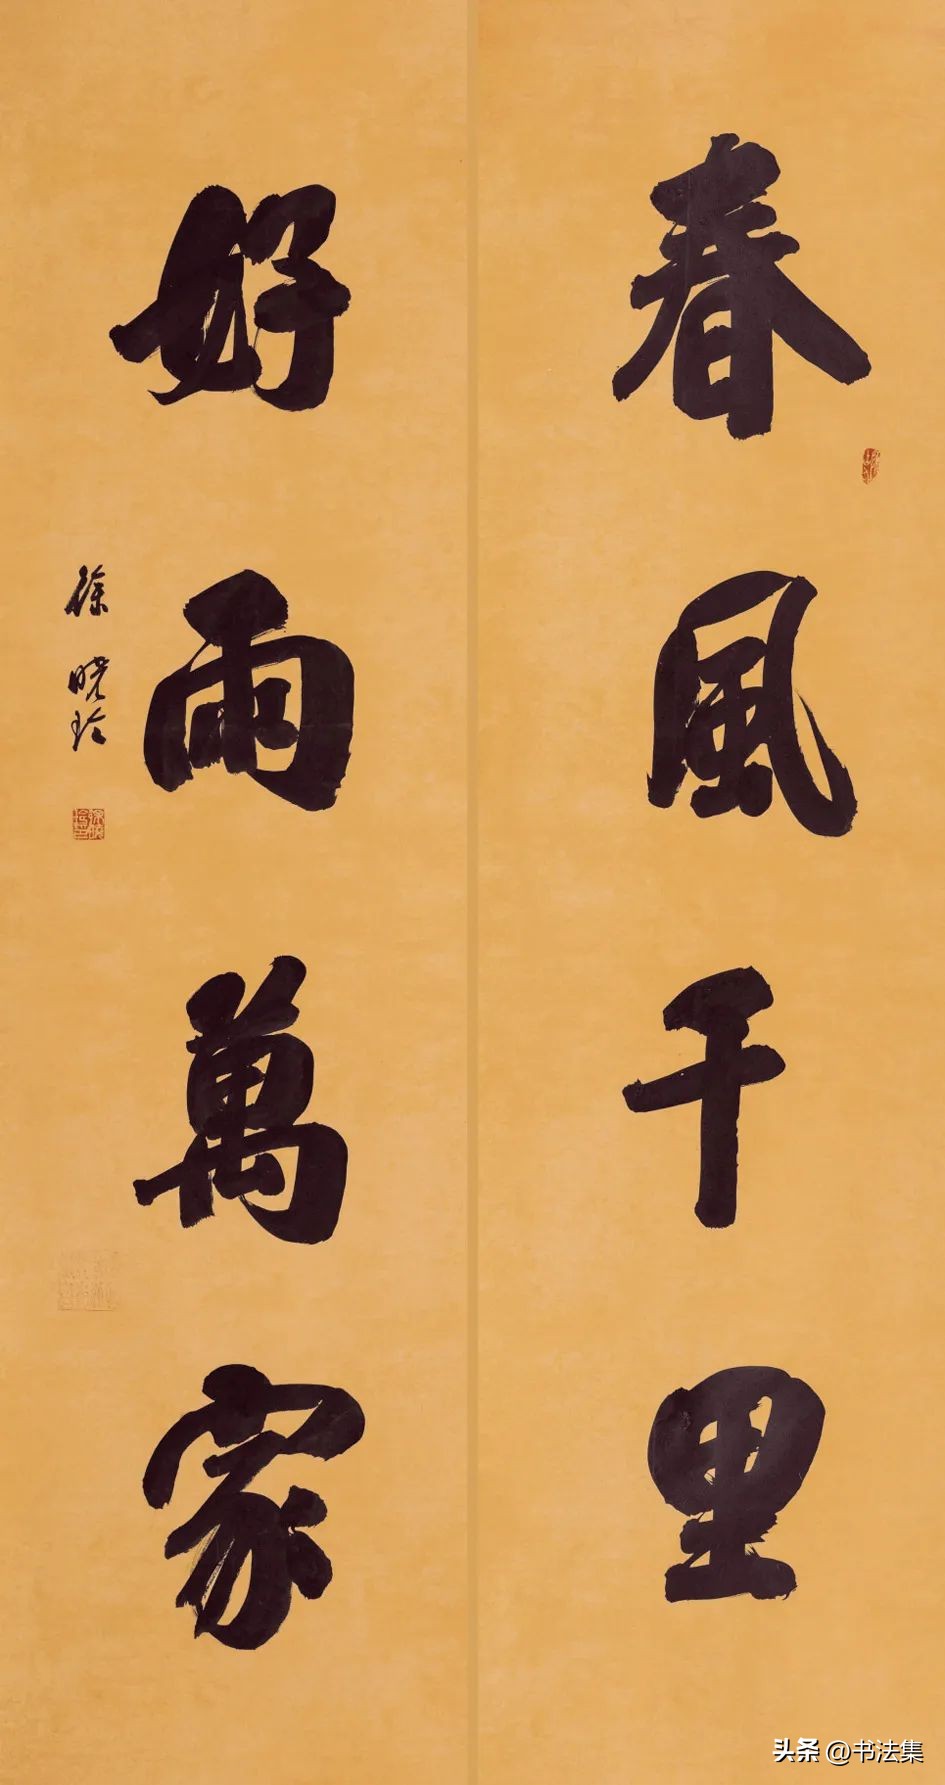 春風千里
好雨萬家
徐曉玲
头条 @书法集